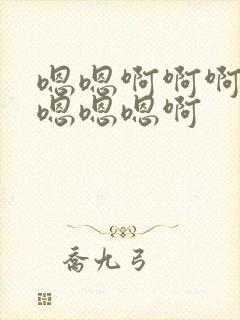 嗯嗯啊啊啊
嗯嗯嗯啊
喬九弓